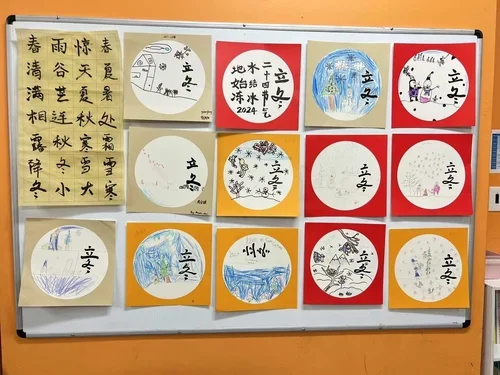 春雨惊春
清谷天夏
满芒夏暑
相连秋处
露秋寒霜
降冬雪雪
冬小大寒
立冬
立冬
二十四节气
水结冰
地始冻
2024
立冬
立冬
立冬
立冬
立冬
立冬
立冬
立冬
立冬
立冬